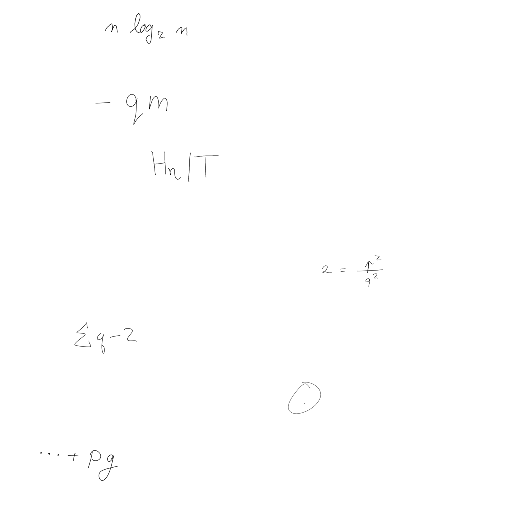 n log₂ n
- qm
Hₙ|T
2 = p²/q²
∑q-2
⊙
⋯ + pg